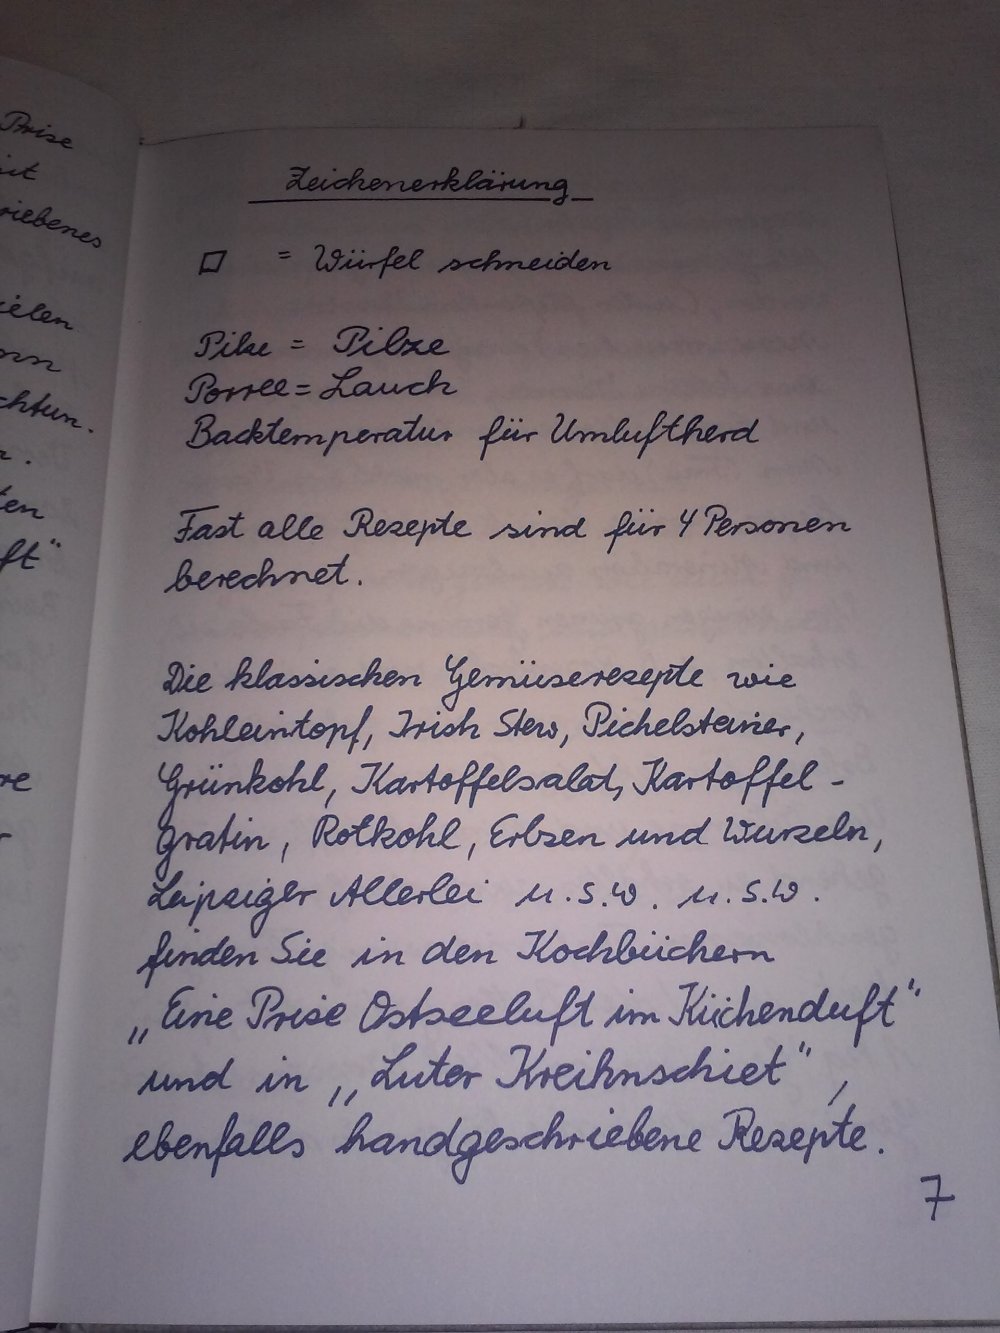 Prise
it
riebenes
ielen
chtun.
ten
ft"
re
Zeichenerklärung
□ = Würfel schneiden
Pilze = Pilze
Porree = Lauch
Backtemperatur für Umluftherd
Fast alle Rezepte sind für 4 Personen
berechnet.
Die klassischen Gemüserezepte wie
Kohleintopf, Irish Stew, Pichelsteiner,
Grünkohl, Kartoffelsalat, Kartoffel-
gratin, Rotkohl, Erbsen und Wurzeln,
Leipziger Allerlei u.s.w. u.s.w.
finden Sie in den Kochbüchern
„Eine Prise Ostseeluft im Küchenduft"
und in „Luter Kreihnschiet",
ebenfalls handgeschriebene Rezepte.
7